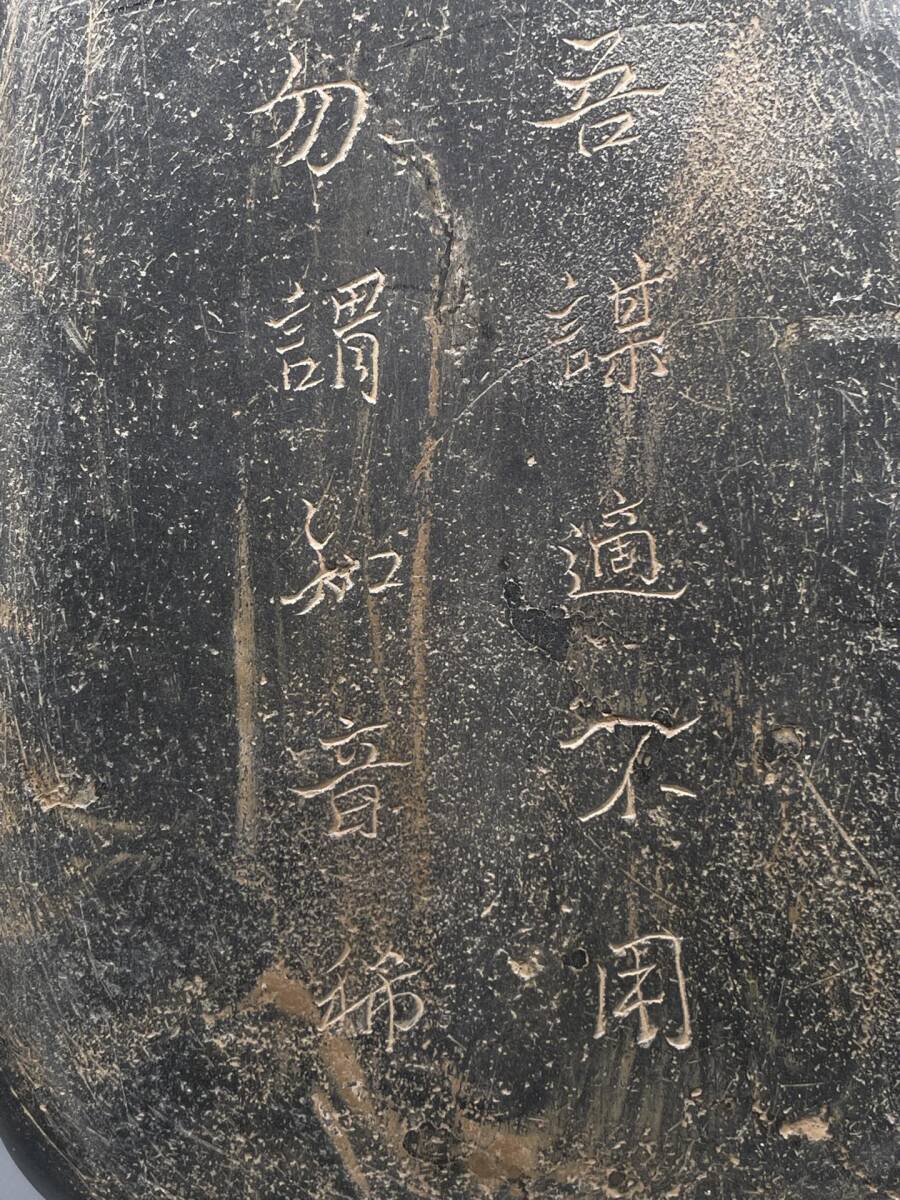 吾謀適不用
勿謂知音稀